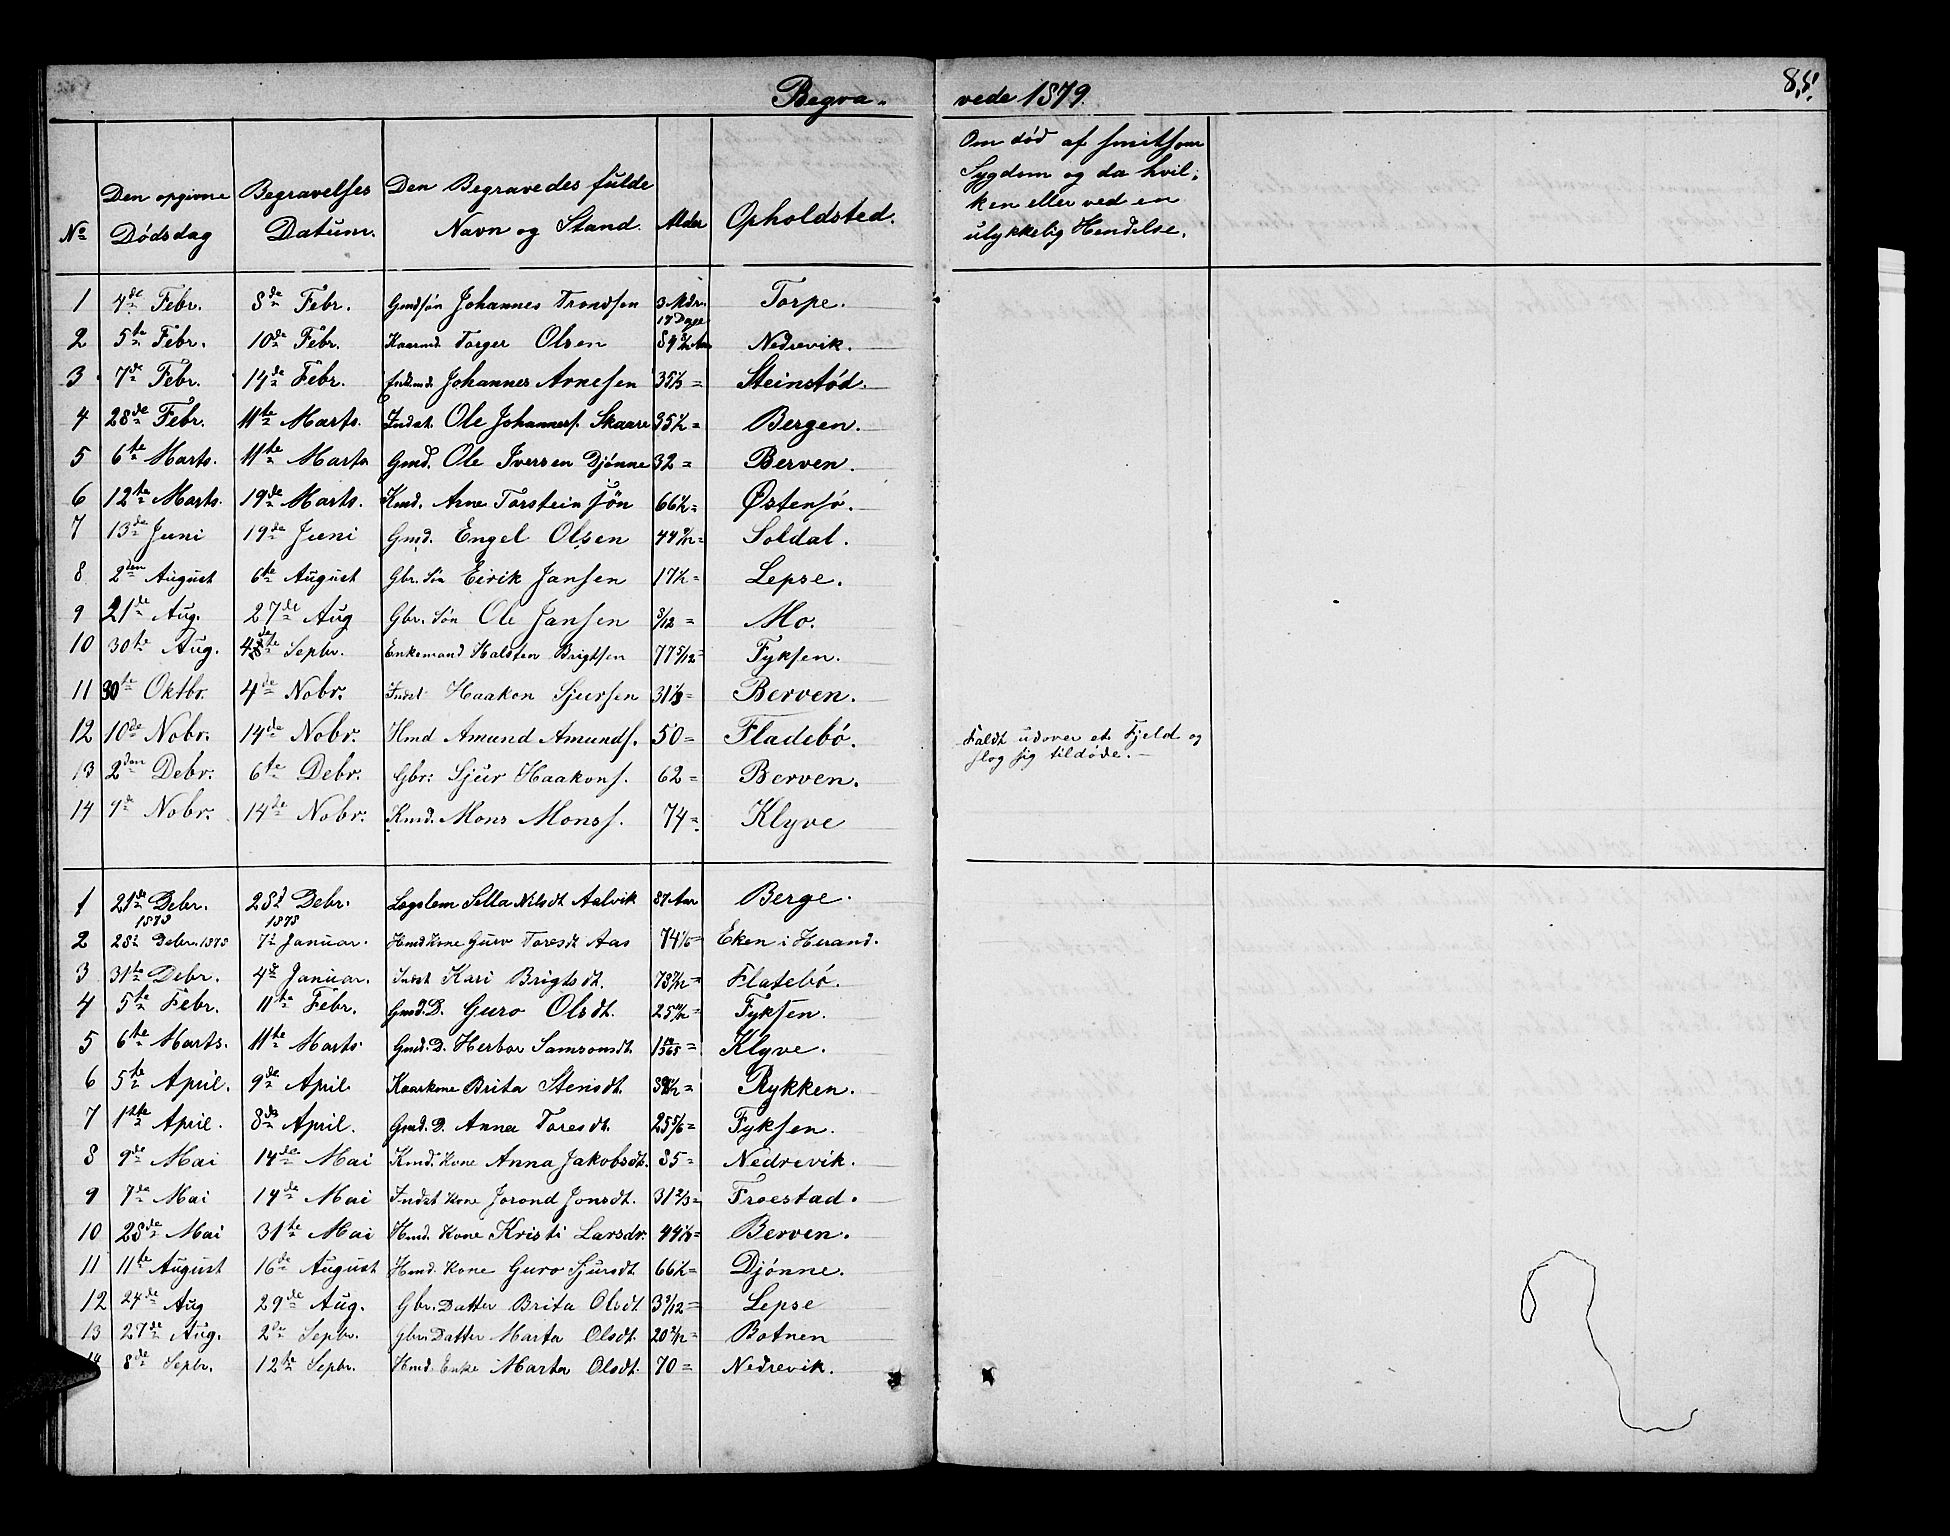 85.
Begra- vede 1879.
No Den opgivne Dødsdag Begravelses Datum. Den Begravedes fulde Navn og Stand. Alder Opholdsted. Om død af smitsom Sygdom og da hvilken eller ved en ulykkelig Hendelse.
1 4de Febr. 8de Febr. Gmdsøn Johannes Trondsen 3 Mdr. 17 Dage Torpe.
2 5te Febr. 10de Febr. Kaarmd. Torger Olsen Nedrevik.
3 7de Febr. 14de Febr. Johannes Arnesen 35 1/3 = Steinstød.
4 28de Febr. 11te Marts. Indst. Ole Johanness. Skaare 35 1/2 = Bergen.
5 6te Marts. 11te Marts Gmd. Ole Iversen Djønne 32 = Berven.
6 12te Marts. 19de Marts. Kmd. Arne Torsteinsøn 66 1/2 = Østensø.
7 13de Juni 19de Juni Gmd. Engel Olsen Soldal.
8 2den August 6te August Gbr. Sön Eirik Jansen 17 1/2 = Lepse.
9 21de Aug. 27de Aug Gbr. Søn Ole Jansen 8/12 = Mo.
10 30te Aug. Sepbr. Enkemand Halsten Brigtsen 77 5/12 = Fyksen.
11 30te Oktbr. 4de Nobr. Indst Haakon Sjursen 31 1/3 = Berven.
12 10de Nobr. 14de Nobr. Hmd Amund Amunds. 50 = Fladebø. Faldt udover et Fjeld og
slog sig tildøde. —
13 2den Debr. 6te Debr. Gbr: Sjur Haakons. 62 = Berven.
14 9de Nobr. 14de Nobr. Kmd. Mons Monss. 74 = Klyve
1 21de Debr. 1878 28d Debr. 1878 Lægslem Sella Nilsdt Aalvik 87 Aar Berge.
2 28d Debr. 1878 7d Januar. Hmd Kone Guro Toresdt Aas 74 1/6 = Eken i Herand.
3 31te Debr. 4de Januar. Indst Kari Brigtsdt. 73 7/12 = Flatebø.
4 5te Febr. 11te Febr. Gmd. D. Guro Olsdt. Fyksen.
5 6te Marts. 11te Marts Gmd. D. Herbor Samsonsdt. Klyve.
6 5te April. 9de April Kaarkone Brita Stensdt. Rykken.
7 1ste April. 8de April. Gmd. D. Anna Toresdt. 25 5/6 = Fyksen.
8 9de Mai 14de Mai Kmd. Kone Anna Jakobsdt. 85 = Nedrevik.
9 7de Mai 14de Mai Indst Kone Jorond Jonsdt. 31 2/3 = Froestad.
10 28de Mai 31te Mai Hmd. Kone Kristi Larsdr. 44 1/3 = Berven.
11 11te August 16de August Hmd. Kone Guro Sjursdt 66 1/2 = Djønne.
12 24de Aug 29de Aug. Gbr. Datter Brita Olsdt 3 3/12 = Lepse
13 27de Aug. 2de Sepbr. Gbr. Datter Marta Olsdt. Botnen
14 8de Sepbr. 12te Sepbr. Hmd. Enke Marta Olsdt. 70 = Nedrevik.